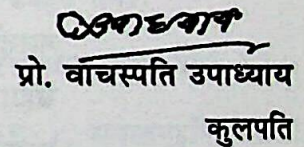 प्रो. वाचस्पति उपाध्याय
कुलपति